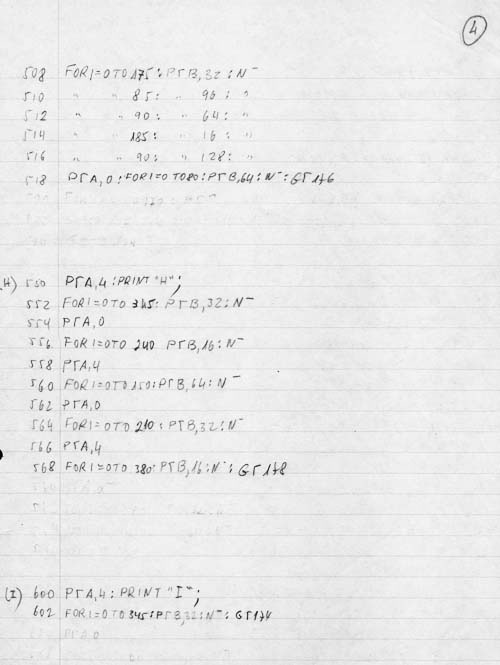 4
508 FOR I=0 TO 175: PΓB,32: N⁻
510 " " 85: " 96: "
512 " " 90: " 64: "
514 " " 185: " 16: "
516 " " 90: " 128: "
518 PΓA,0: FOR I=0 TO 80: PΓB,64: N⁻: GΓ176
(H) 550 PΓA,4: PRINT "H";
552 FOR I=0 TO 345: PΓB,32: N⁻
554 PΓA,0
556 FOR I=0 TO 240 PΓB,16: N⁻
558 PΓA,4
560 FOR I=0 TO 150: PΓB,64: N⁻
562 PΓA,0
564 FOR I=0 TO 210: PΓB,32: N⁻
566 PΓA,4
568 FOR I=0 TO 380: PΓB,16: N⁻: GΓ178
(I) 600 PΓA,4: PRINT "I";
602 FOR I=0 TO 345: PΓB,32: N⁻: GΓ174